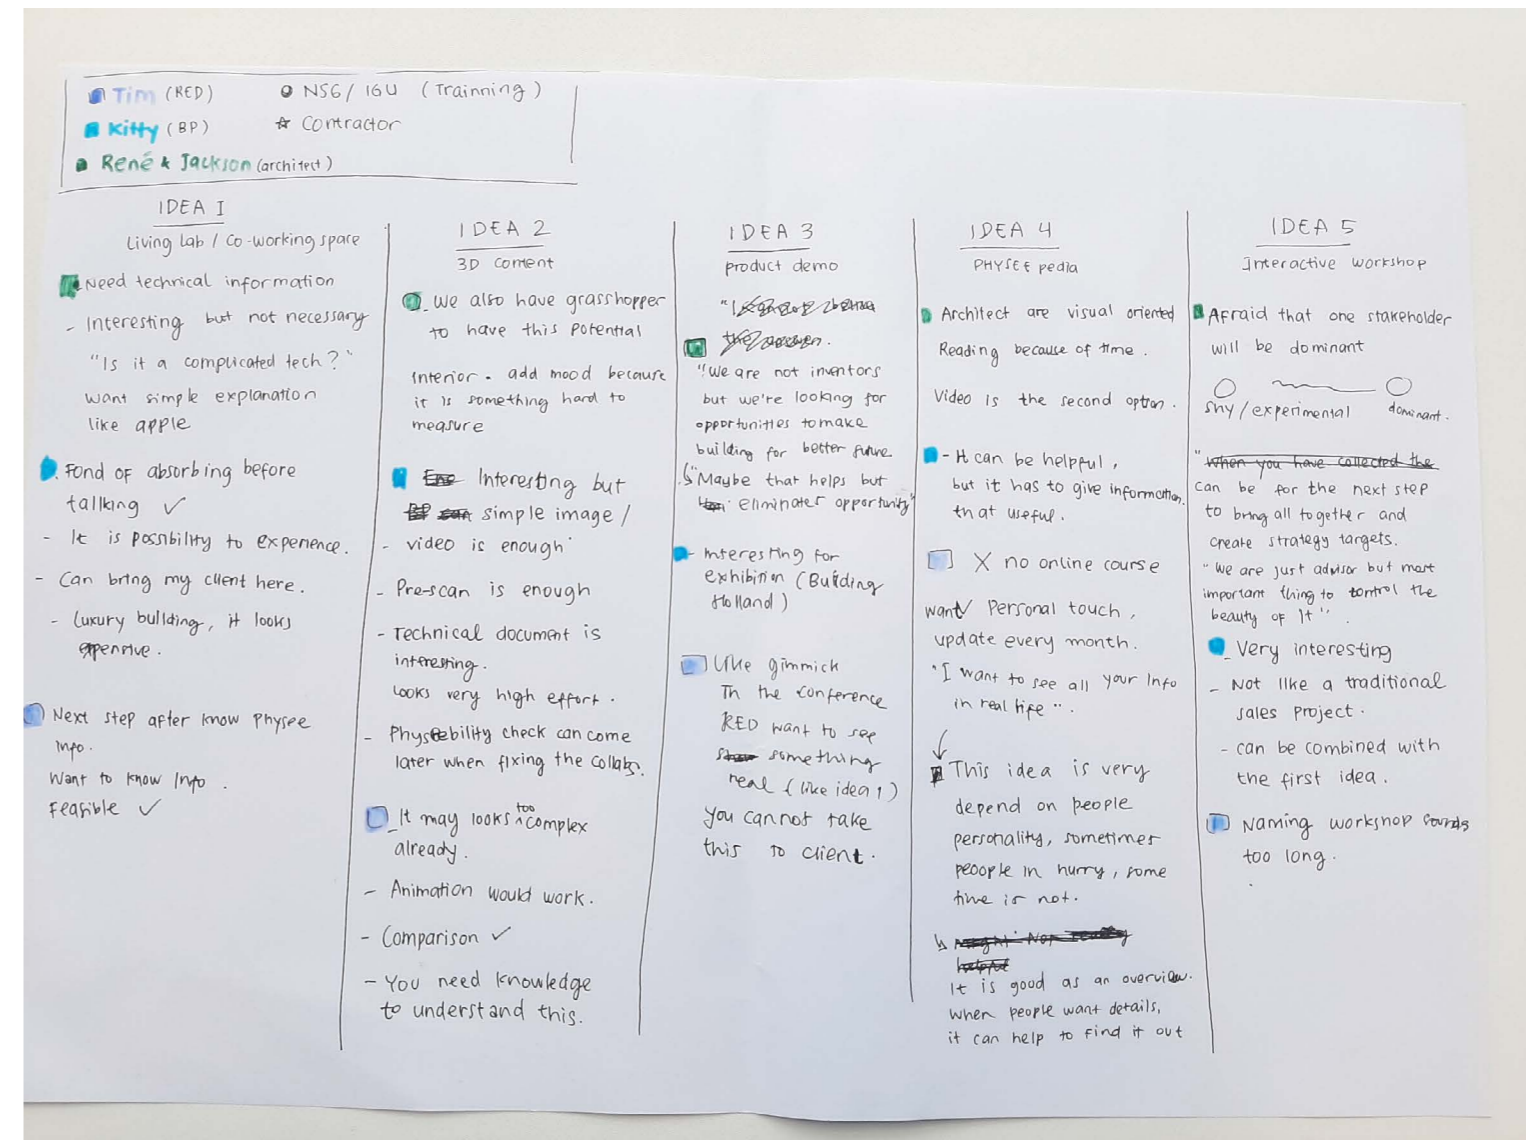 Tim (RED)
NSG/ IGU (Trainning)
Kitty (BP)
☆ Contractor
René & Jackson (architect)
IDEA I
Living Lab / Co-working space
Need technical information
- Interesting but not necessary
"Is it a complicated tech?"
want simple explanation
like apple
Fond of absorbing before
tallking ✓
- It is possibility to experience.
- Can bring my client here.
- Luxury building, it looks
expensive.
Next step after know Physee
info.
Want to know Info.
Feasible ✓
IDEA 2
3D content
- we also have grasshopper
to have this potential
Interior - add mood because
it is something hard to
measure
Interesting but
simple image /
- video is enough
- Pre-scan is enough
- Technical document is
interesting.
Looks very high effort.
- Physeebility check can come
later when fixing the collabs.
- It may looks too complex
already.
- Animation would work.
- Comparison ✓
- You need knowledge
to understand this.
IDEA 3
product demo
"We are not inventors
but we're looking for
opportunities to make
building for better future
↳"Maybe that helps but
eliminates opportunity"
- Interesting for
exhibition (Building
Holland)
Like gimmick
In the conference
RED want to see
something
real (like idea 1)
you cannot take
this to client.
IDEA 4
PHYSEE pedia
Architect are visual oriented
Reading because of time.
Video is the second option.
- It can be helpful,
but it has to give information
that useful.
X no online course
want Personal touch,
update every month.
"I want to see all your Info
in real life".
↓
This idea is very
depend on people
personality, sometimes
peoople in hurry, some
time is not.
↳ might not really
helpful
It is good as an overview.
when people want details,
it can help to find it out
IDEA 5
Interactive workshop
Afraid that one stakeholder
will be dominant
shy/experimental dominant.
"when you have collected the
can be for the next step
to bring all together and
create strategy targets.
"We are just advisor but most
important thing to control the
beauty of it".
- Very interesting
- Not like a traditional
sales project.
- can be combined with
the first idea.
Naming workshop sounds
too long.